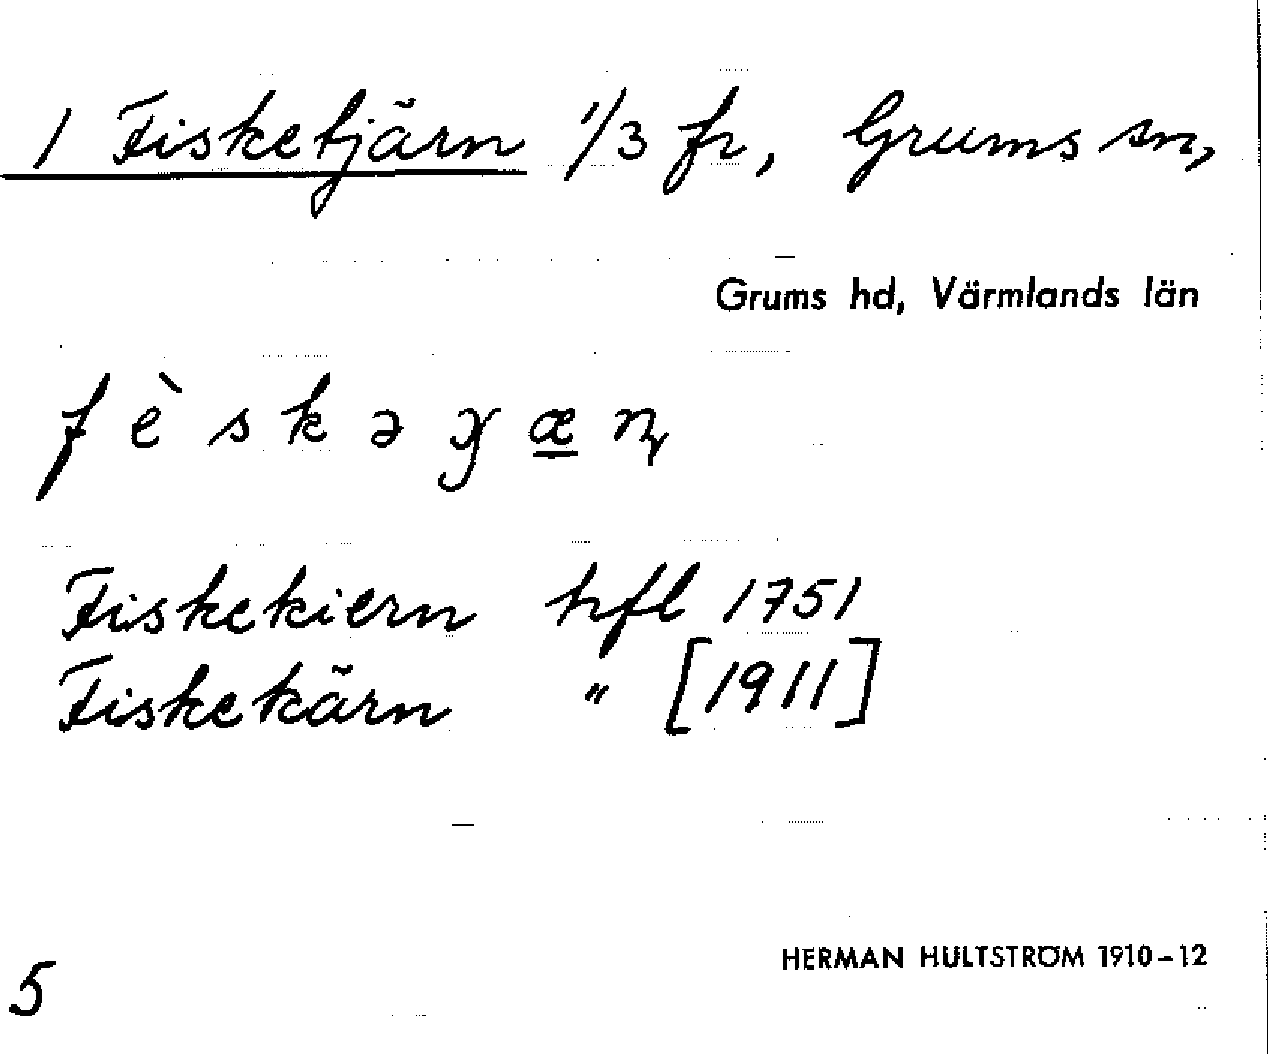 1 Fisketjärn 1/3 fr, Grums sn,
Grums hd, Värmlands län
f è s k ə ɣ æ ɳ
Fiskekiern hfl 1751
Fiskekärn " [1911]
5
HERMAN HULTSTRÖM 1910–12